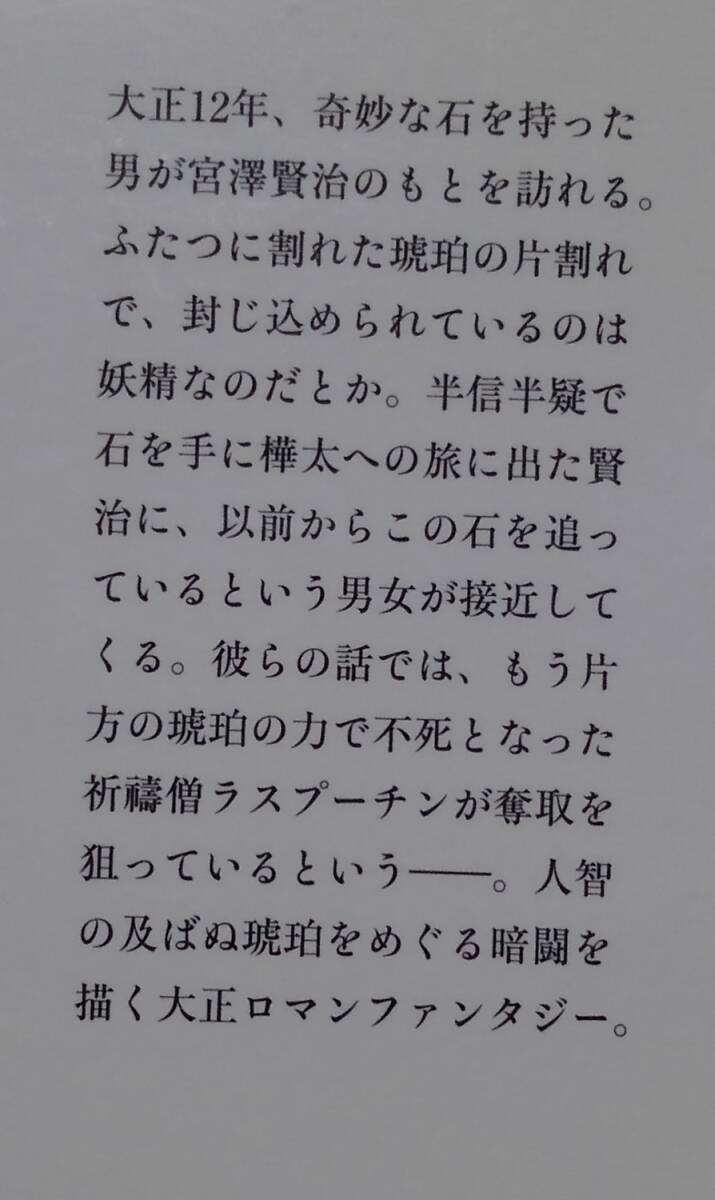 大正12年、奇妙な石を持った
男が宮澤賢治のもとを訪れる。
ふたつに割れた琥珀の片割れ
で、封じ込められているのは
妖精なのだとか。半信半疑で
石を手に樺太への旅に出た賢
治に、以前からこの石を追っ
ているという男女が接近して
くる。彼らの話では、もう片
方の琥珀の力で不死となった
祈禱僧ラスプーチンが奪取を
狙っているという――。人智
の及ばぬ琥珀をめぐる暗闘を
描く大正ロマンファンタジー。